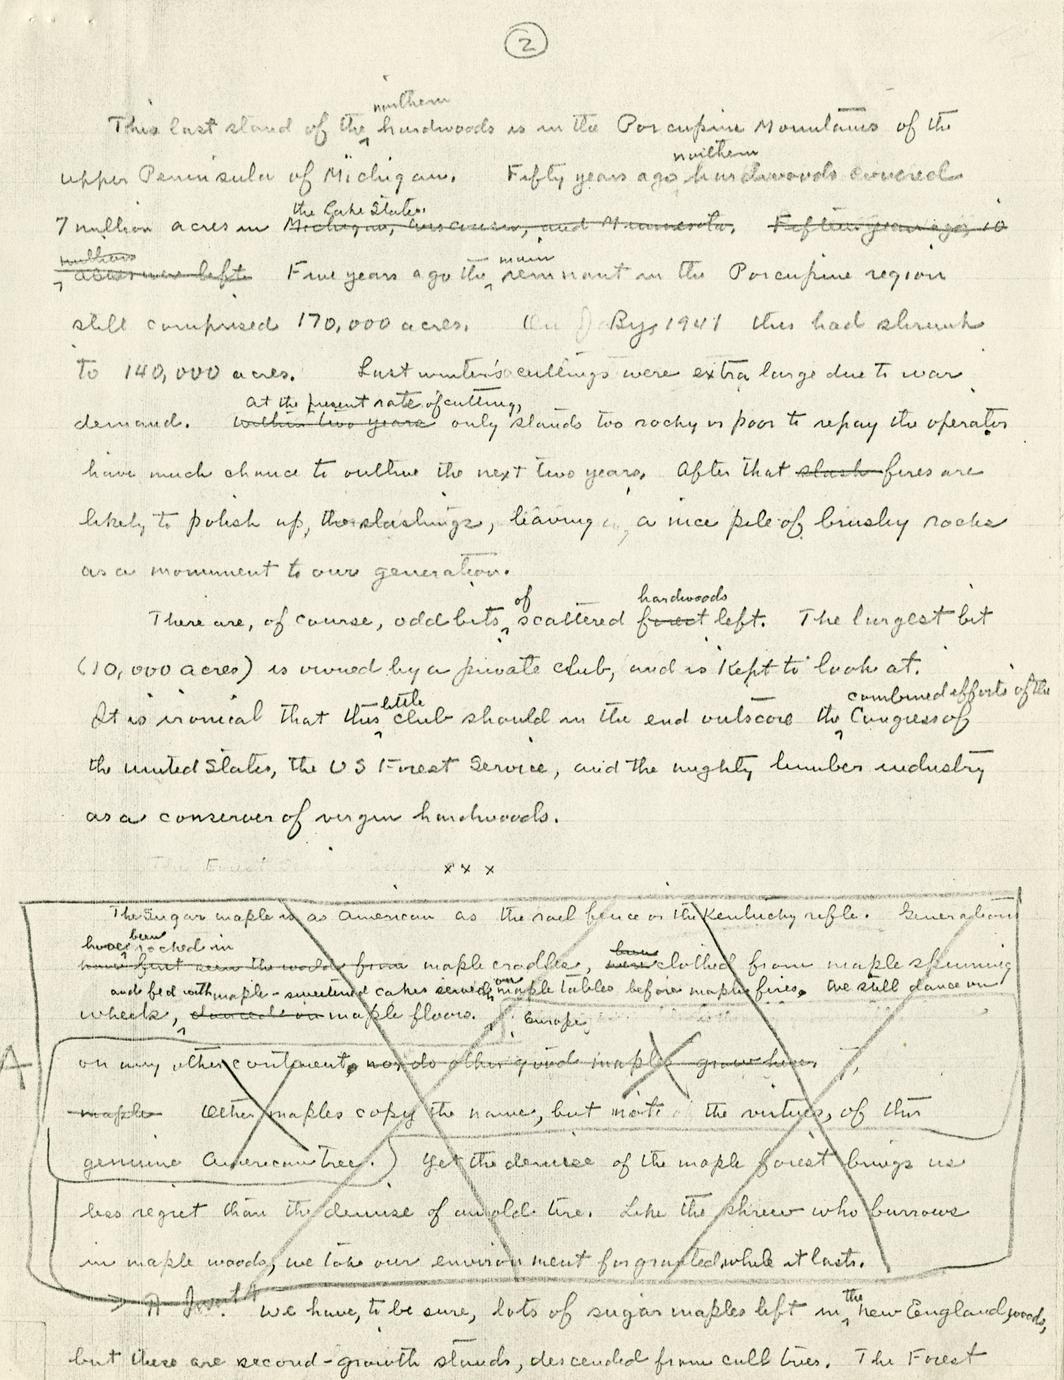 2
northern
This last stand of the hardwoods is in the Porcupine Mountains of the
northern
upper Peninsula of Michigan. Fifty years ago hardwoods covered
the Lake States.
7 million acres in Michigan, Wisconsin, and Minnesota. Fifteen years ago 10
millions main
acres were left Five years ago the remnant in the Porcupine region
still comprised 170,000 acres. By 1941 this had shrunk
to 140,000 acres. Last winter's cuttings were extra large due to war
At the present rate of cutting,
demand. Within two years only stands too rocky or poor to repay the operator
have much chance to outlive the next two years. After that slash fires are
likely to polish up, the slashings, leaving a nice pile of brushy rocks
as a monument to our generation.
of hardwoods
There are, of course, odd bits scattered forest left. The largest bit
(10,000 acres) is owned by a private club, and is kept to look at.
little combined efforts of the
It is ironical that this club should in the end outscore the Congress of
the United States, the US Forest Service, and the mighty lumber industry
as a conserver of virgin hardwoods.
x x x
The Sugar maple is as American as the rail fence or the Kentucky rifle. Generations
have been rocked in been
have first seen the world from maple cradles, were clothed from maple spinning
and fed with maple-sweetened cakes served on maple tables before maple fires. We still dance on
wheels, danced on maple floors. Europe
A
on any other continent, nor do other good maples grow here
maple Other maples copy the name, but not the virtues, of this
genuine American tree.) Yet the demise of the maple forest brings us
less regret than the demise of an old tire. Like the shrew who burrows
in maple woods, we take our environment for granted while it lasts.
the
we have, to be sure, lots of sugar maples left in New England woods,
but these are second-growth stands, descended from cull trees. The Forest